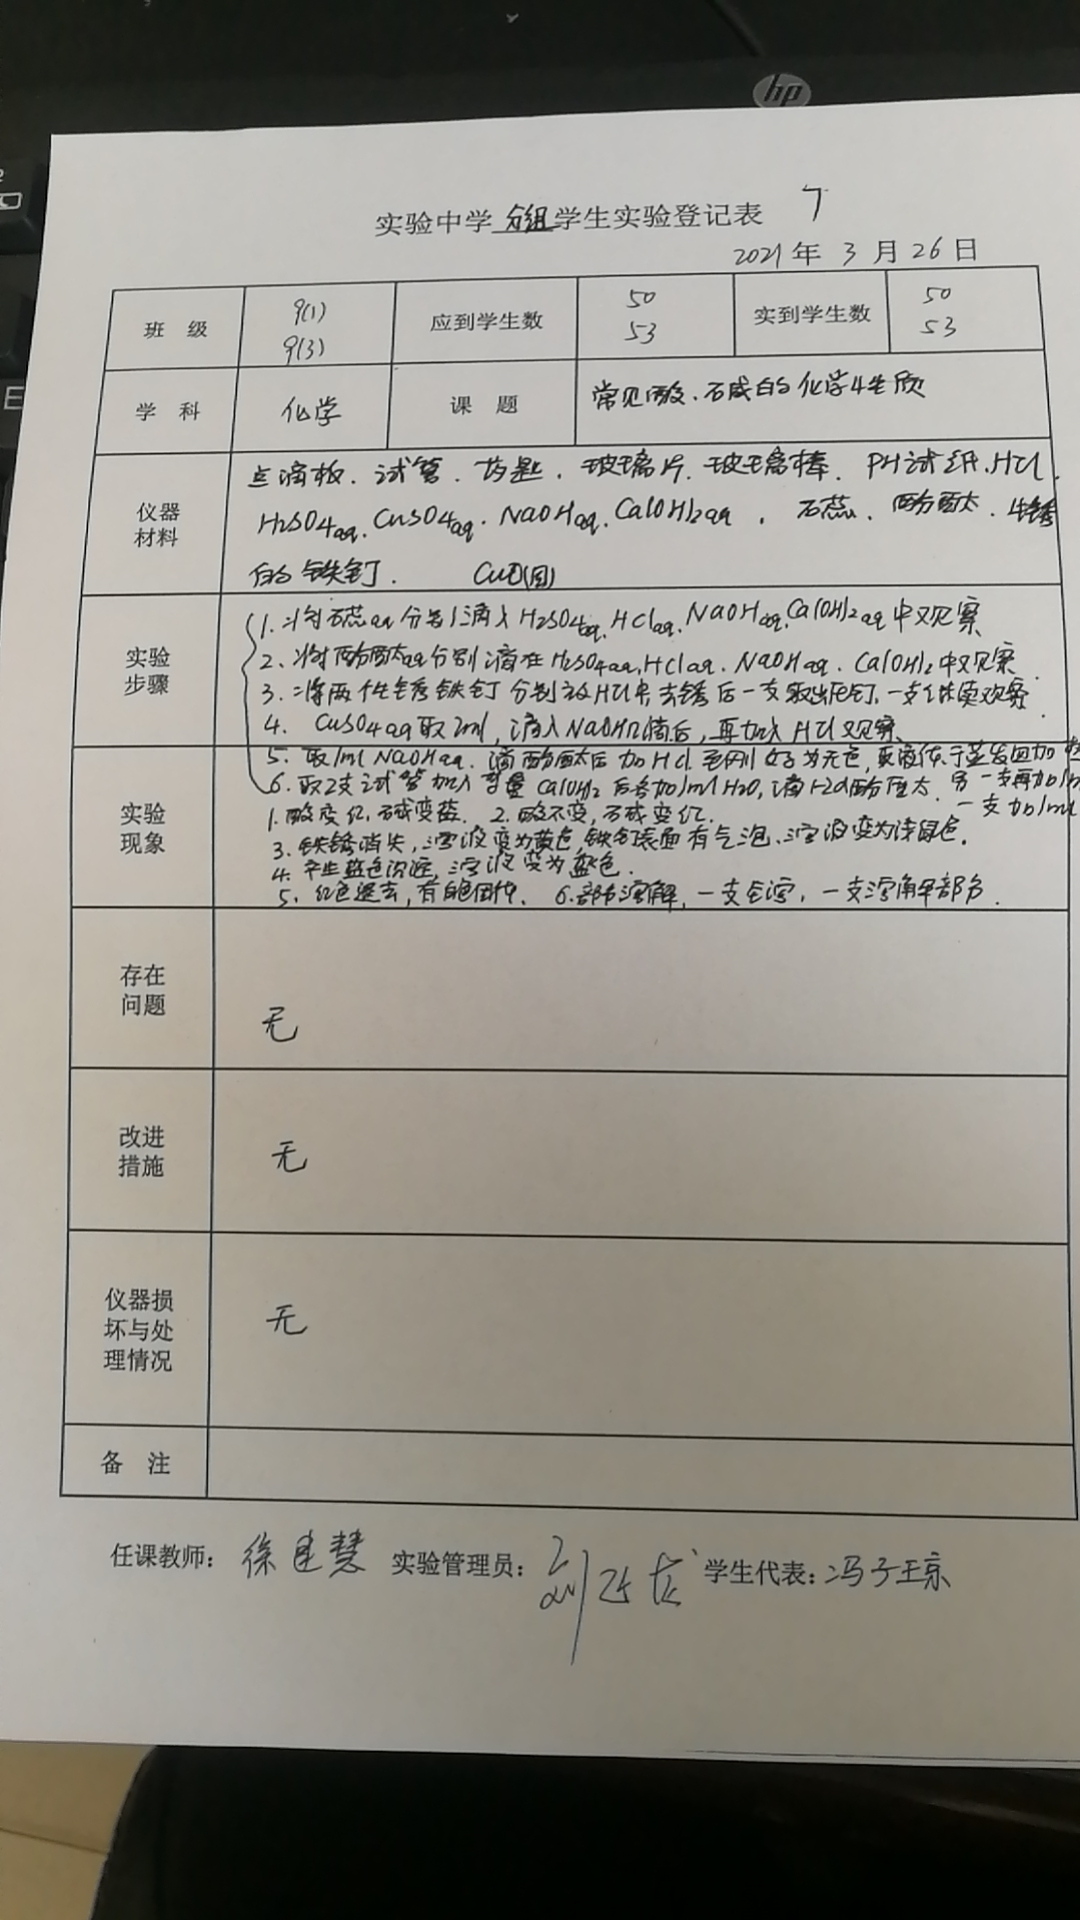 hp
实验中学分组学生实验登记表 7
2021年 3 月 26 日
班 级 9(1) 9(3) 应到学生数 50 53 实到学生数 50 53
学 科 化学 课 题 常见酸、碱的化学性质
仪器材料
点滴板、试管、药匙、玻璃片、玻璃棒、PH试纸、HCl、
H2SO4aq、CuSO4aq、NaOHaq、Ca(OH)2aq、石蕊、酚酞、生锈
的铁钉、 CuO(固)
实验步骤
1、将石蕊aq分别滴入H2SO4aq、HClaq、NaOHaq、Ca(OH)2aq中观察
2、将酚酞aq分别滴在H2SO4aq、HClaq、NaOHaq、Ca(OH)2中观察
3、将两个生锈铁钉分别放HCl中,去锈后一支取出铁钉,一支继续观察
4、CuSO4aq取2ml,滴入NaOH几滴后,再加入HCl观察
5、取1ml NaOHaq、滴酚酞后加HCl至刚好为无色,取液体于蒸发皿加
6、取2支试管加入 Ca(OH)2后各加1ml H2O,滴1-2d酚酞、另一支再加
一支加1ml
实验现象
1、酸变红、碱变蓝、2、酸不变,碱变红.
3、铁锈消失,溶液变为黄色,铁钉表面有气泡、溶液变为浅绿色.
4、产生蓝色沉淀,溶液变为蓝色.
5、红色退去,有白色固体、6、部分溶解,一支全溶,一支溶解部分.
存在问题 无
改进措施 无
仪器损坏与处理情况 无
备 注
任课教师: 徐建慧 实验管理员: 刘 学生代表:冯子琼